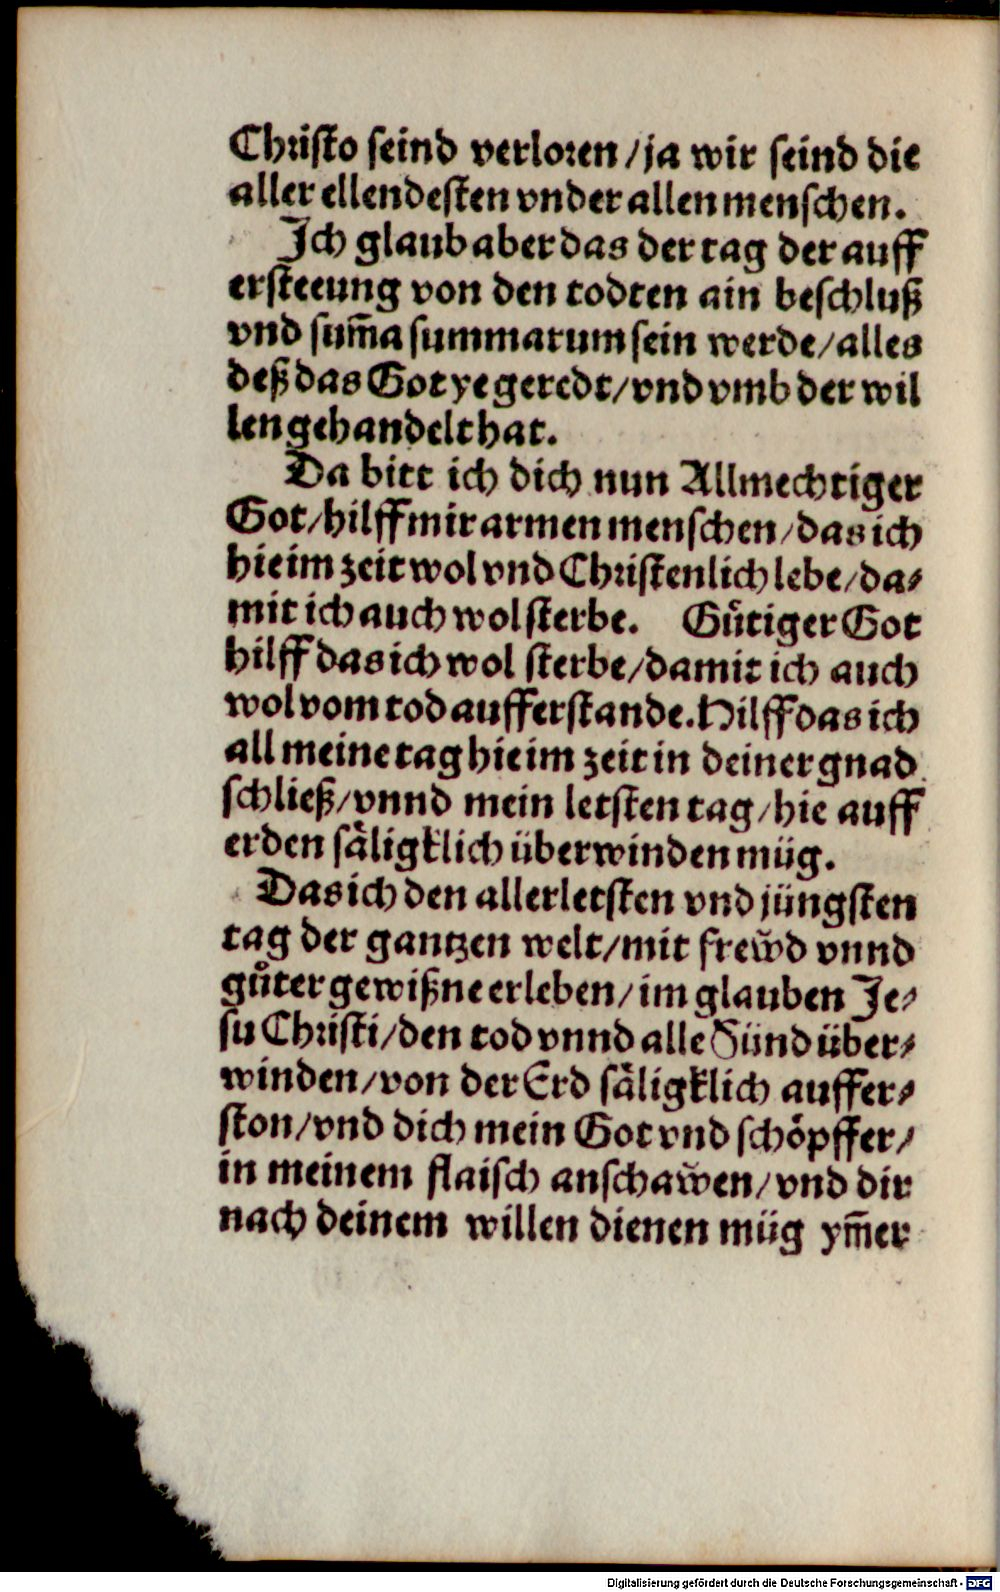 Christo seind verloren/ja wir seind die
aller ellendesten vnder allen menschen.
Ich glaub aber das der tag der auff
ersteeung von den todten ain beschluß
vnd sum̃a summarum sein werde/alles
deß das Got ye geredt/vnd vmb der wil
len gehandelt hat.
Da bitt ich dich nun Allmechtiger
Got/hilff mir armen menschen/das ich
hie im zeit wol vnd Christenlich lebe/da⸗
mit ich auch wol sterbe. Gůtiger Got
hilff das ich wol sterbe/damit ich auch
wol vom tod aufferstande. Hilff das ich
all meine tag hie im zeit in deiner gnad
schließ/vnnd mein letsten tag/hie auff
erden säligklich überwinden müg.
Das ich den allerletsten vnd jüngsten
tag der gantzen welt/mit frew̆d vnnd
gůter gewißne erleben/im glauben Je⸗
su Christi/den tod vnnd alle Sünd über⸗
winden/von der Erd säligklich auffer⸗
ston/vnd dich mein Got vnd schöpffer/
in meinem flaisch anschaw̆en/vnd dir
nach deinem willen dienen müg ym̃er
Digitalisierung gefördert durch die Deutsche Forschungsgemeinschaft - DFG